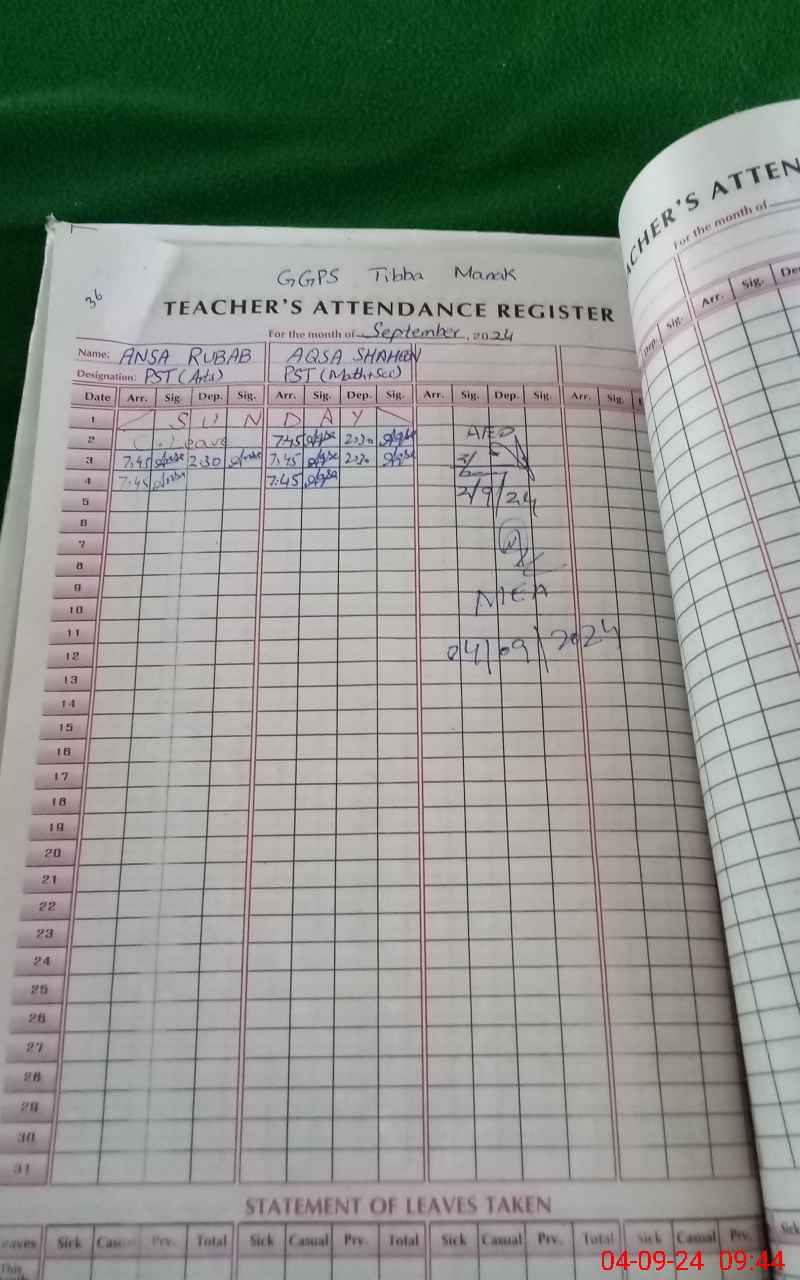 36
GGPS Tibba Manak
TEACHER'S ATTENDANCE REGISTER
For the month of September, 2024
Name: ANSA RUBAB AQSA SHAHEEN
Designation: PST (Arts) PST (Math+Sci)
Date Arr. Sig. Dep. Sig. Arr. Sig. Dep. Sig. Arr. Sig. Dep. Sig. Arr. Sig.
1 SUNDAY
2 C.Leave 7:45 Aqsa 2:30 Aqsa AEO
3 7:45 Ansa 2:30 Ansa 7:45 Aqsa 2:30 Aqsa
4 7:45 Ansa 7:45 Aqsa
5 2/9/24
6
7
8
9
10 MEA
11
12 04/09/2024
13
14
15
16
17
18
19
20
21
22
23
24
25
26
27
28
29
30
31
STATEMENT OF LEAVES TAKEN
eaves Sick Casual Prv. Total Sick Casual Prv. Total Sick Casual Prv. Total Sick Casual Prv.
This
ACHER'S ATTEN
For the month of
Dep. Sig. Arr. Sig. Dep
Sick
04-09-24 09:44